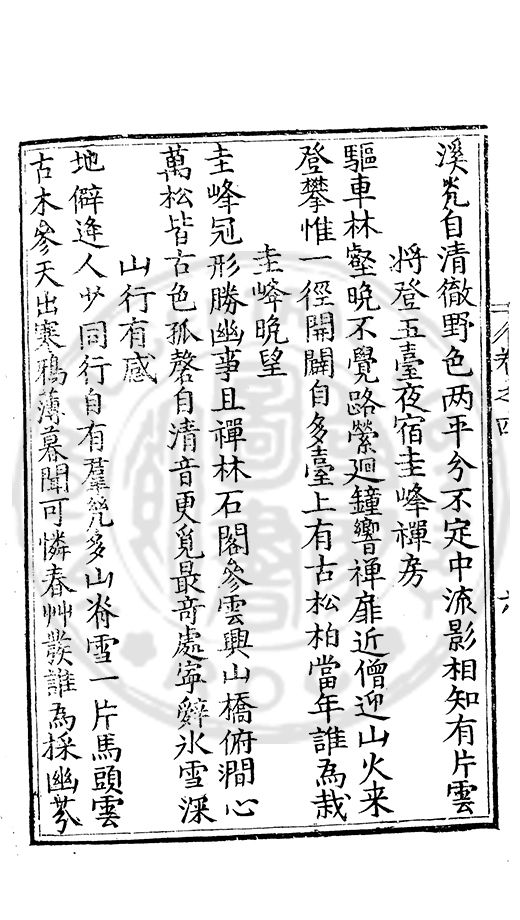 溪光自清徹野色两平分不定中流影相知有片雲
將登五臺夜宿圭峰禪房
驅車林壑晩不覺路縈廻鐘響禅扉近僧迎山火来
登攀惟一徑開闢自多臺上有古松柏當年誰為栽
圭峰晩望
圭峰冠形勝幽事且禪林石閣參雲興山橋俯澗心
萬松皆古色孤磬自清音更覓最竒處寜辭氷雪深
山行有感
地僻逢人少同行自有羣幾多山脊雪一片馬頭雲
古木參天出寒鴉薄暮聞可憐春艸發誰為採幽芬
卷之四
六